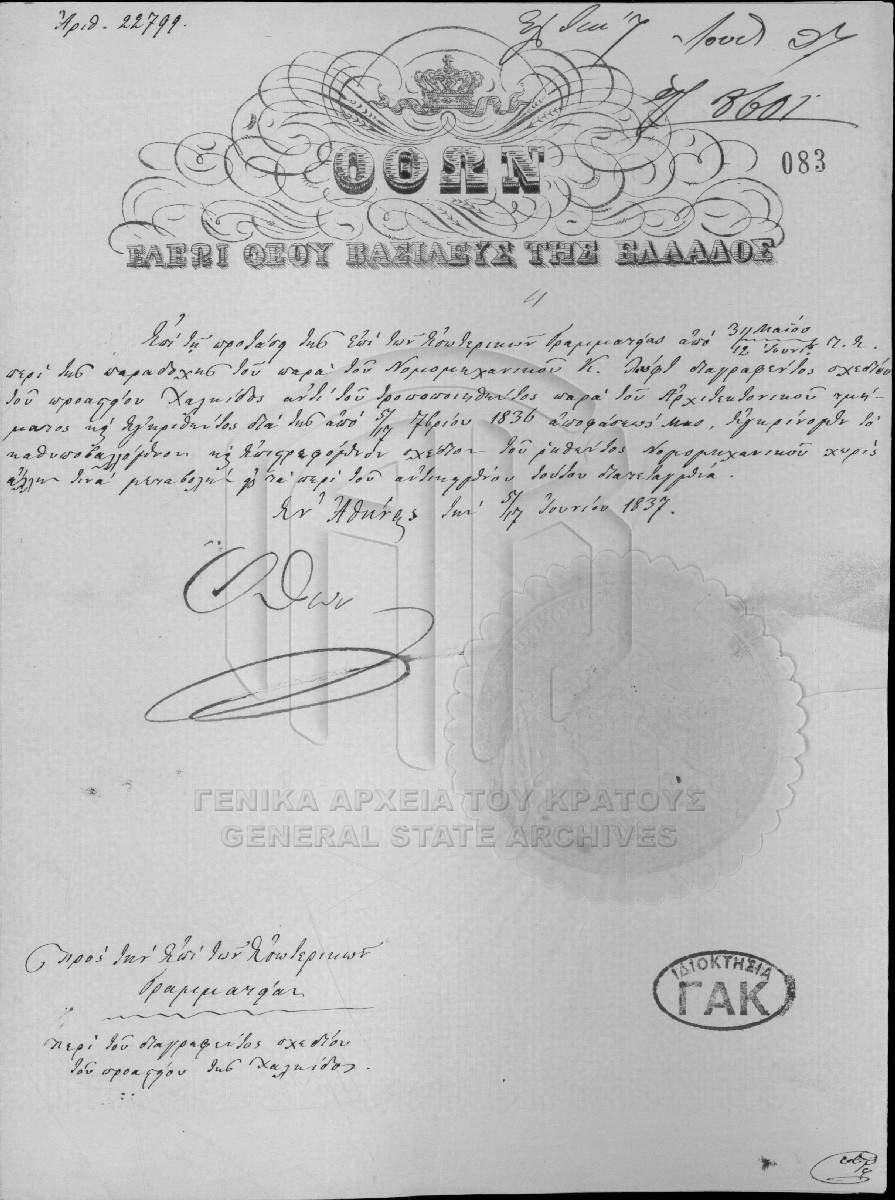 Ἀριθ. 22799.
Ἰουλ 37
8601
083
ΟΘΩΝ
ΕΛΕΩΙ ΘΕΟΥ ΒΑΣΙΛΕΥΣ ΤΗΣ ΕΛΛΑΔΟΣ
Ἐπὶ τῇ προτάσῃ τῆς ἐπὶ τῶν Ἐσωτερικῶν Γραμματείας ἀπὸ 31 Μαΐου / 12 Ἰουνίου
περὶ τῆς παραδοχῆς τοῦ παρὰ τοῦ Νομομηχανικοῦ Κ. διαγραφέντος σχεδίου
τοῦ προαστείου Χαλκίδος ἀντὶ τοῦ τροποποιηθέντος παρὰ τοῦ Ἀρχιτεκτονικοῦ τμή-
ματος καὶ ἐγκριθέντος διὰ τῆς ἀπὸ 5/17 7βρίου 1836 ἀποφάσεώς μας, ἐγκρίνομεν τὸ
καθυποβαλλόμενον καὶ ἐπιστρεφόμενον σχέδιον τοῦ ῥηθέντος Νομομηχανικοῦ χωρὶς
ἄλλην τινὰ μεταβολὴν τὰ περὶ τοῦ ἀντικειμένου τούτου διατεταγμένα.
Ἐν Ἀθήναις τὴν 5/17 Ἰουνίου 1837.
Ὄθων
ΓΕΝΙΚΑ ΑΡΧΕΙΑ ΤΟΥ ΚΡΑΤΟΥΣ
GENERAL STATE ARCHIVES
Πρὸς τὴν ἐπὶ τῶν Ἐσωτερικῶν
Γραμματείαν
περὶ τοῦ διαγραφέντος σχεδίου
τοῦ προαστείου τῆς Χαλκίδος.
ΙΔΙΟΚΤΗΣΙΑ
ΓΑΚ